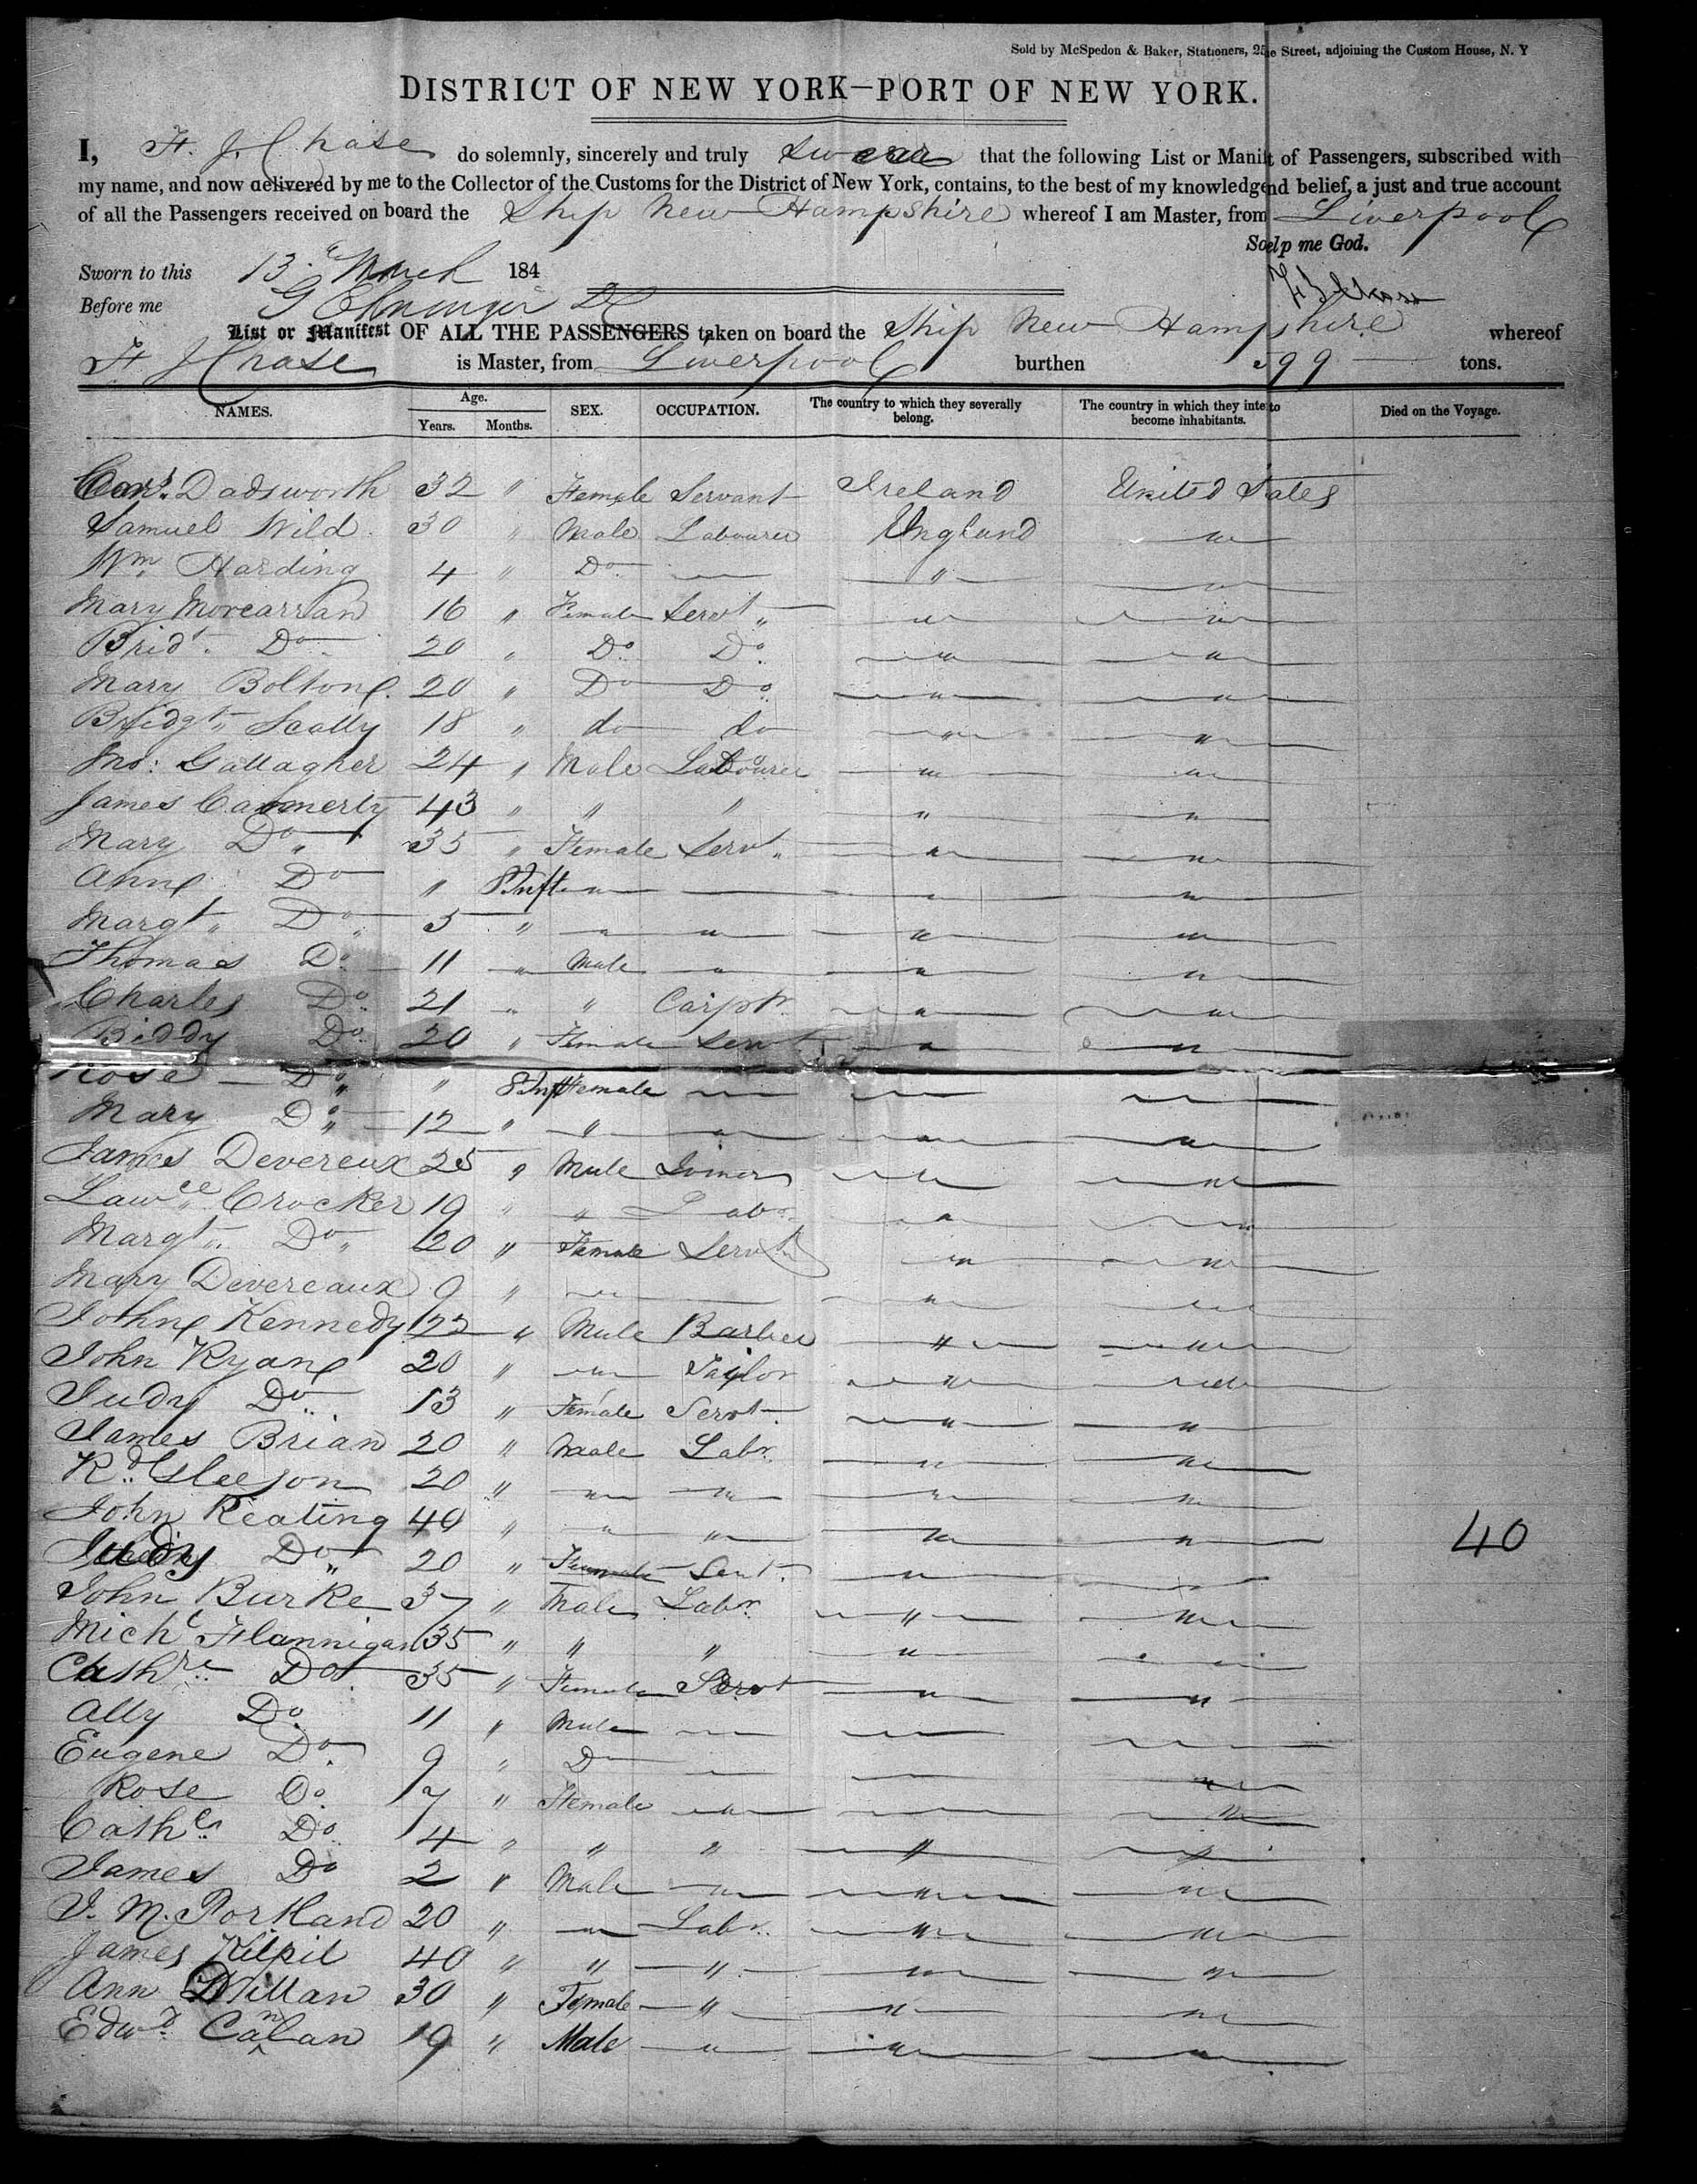 Sold by McSpedon & Baker, Stationers, 25 Street, adjoining the Custom House, N. Y
DISTRICT OF NEW YORK—PORT OF NEW YORK.
I, F. J. Chase do solemnly, sincerely and truly swear that the following List or Manift of Passengers, subscribed with
my name, and now delivered by me to the Collector of the Customs for the District of New York, contains, to the best of my knowledge nd belief, a just and true account
of all the Passengers received on board the Ship New Hampshire whereof I am Master, from Liverpool
So elp me God.
Sworn to this 13 March 184
F J Chase
Before me
List or Manifest OF ALL THE PASSENGERS taken on board the Ship New Hampshire whereof
F J Chase is Master, from Liverpool burthen 99 tons.
NAMES. Age. Years. Months. SEX. OCCUPATION. The country to which they severally belong. The country in which they inte to become inhabitants. Died on the Voyage.
Dadsworth 32 " Female Servant Ireland United States
Samuel Wild 30 " Male Labourer England "
Wm Harding 4 " Do " "
Mary 16 " Female Servt " " "
Bridt Do 20 " Do Do " "
Mary Bolton 20 " Do Do " "
Bridgt Scally 18 " do do " "
Jno: Gallagher 24 " Male Labourer " "
James 43 " " " " "
Mary Do 35 " Female Servt " "
Anne Do " 8 Inft " " "
Margt Do 5 " " " " "
Thomas Do 11 " Male " " "
Charles Do 21 " " Carptr " "
Biddy Do 20 " Female Servt " "
Rose Do " 8 Inft Female " " "
Mary Do 12 " " " " "
James Devereux 25 " Male " "
Lawce Crocker 19 " " Labr " "
Margt Do 20 " Female Servt " "
Mary Devereaux 9 " " " "
John Kennedy 22 " Male Barber " "
John Ryan 20 " " Taylor " "
Judy Do 13 " Female Servt " "
James Brian 20 " Male Labr " "
Rd Gleeson 20 " " " " "
John Keating 40 " " " " " 40
Judy Do 20 " Female Servt " "
John Burke 37 " Male Labr " "
Michl Flannigan 35 " " " " "
Cathre Do 35 " Female Servt " "
Ally Do 11 " Male " " "
Eugene Do 9 " Do " " "
Rose Do 7 " Female " " "
Cathe Do 4 " " " " "
James Do 2 " Male " " "
J. M. Portland 20 " " Labr " "
James Kilpil 40 " " " " "
Ann Millan 30 " Female " " "
Edwd Canlan 19 " Male " " "